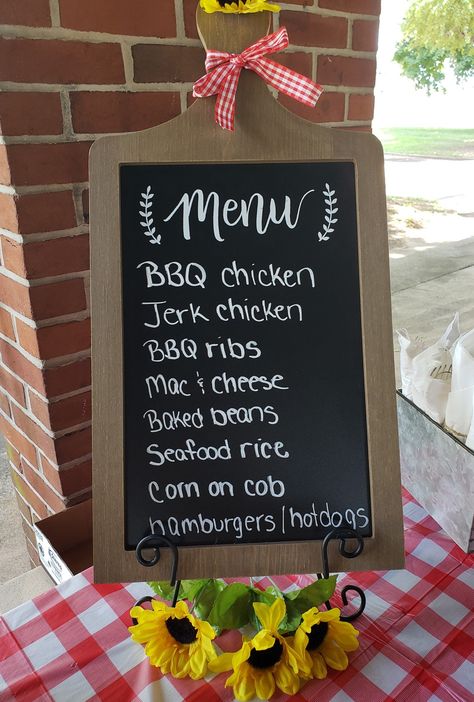 Menu
BBQ chicken
Jerk chicken
BBQ ribs
Mac & cheese
Baked beans
Seafood rice
Corn on cob
hamburgers/hotdogs